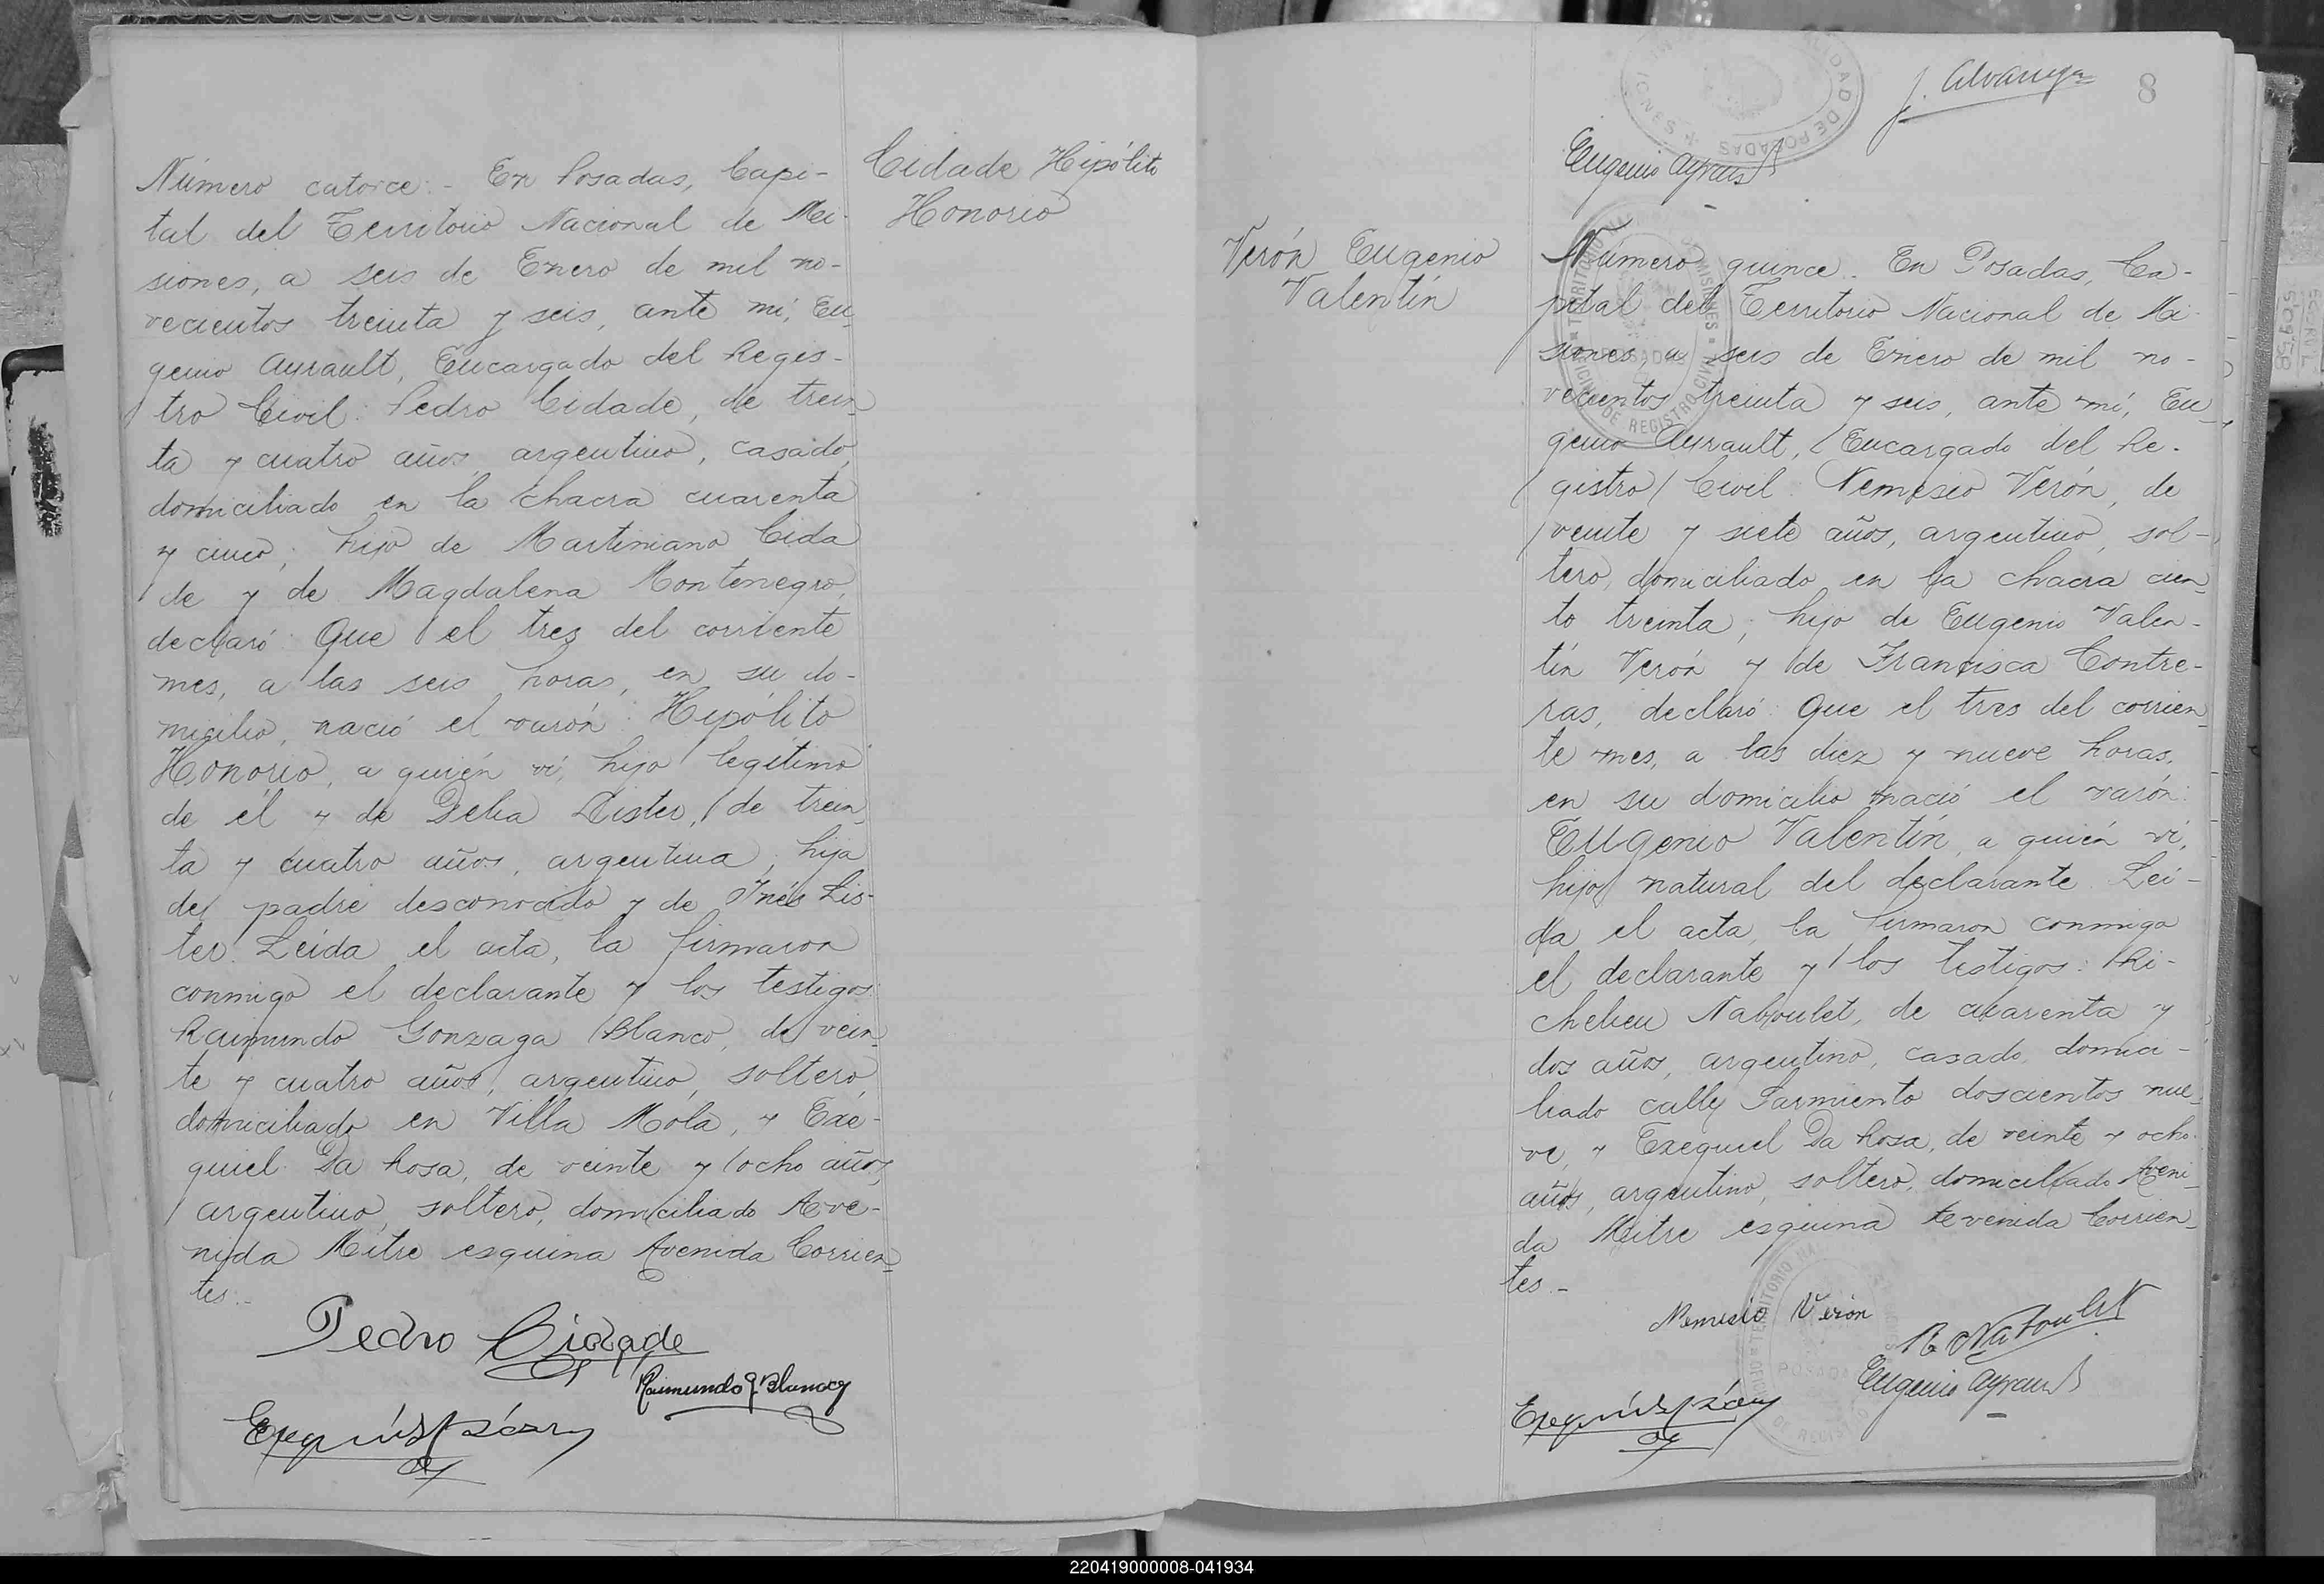 Cidade Hipólito
Honorio
Número catorce.- En Posadas, Capi-
tal del Territorio Nacional de Mi-
siones, a seis de Enero de mil no-
vecientos treinta y seis, ante mí, Eu-
genio Ayrault, Encargado del Regis-
tro Civil: Pedro Cidade, de trein-
ta y cuatro años, argentino, casado,
domiciliado en la chacra cuarenta
y cinco; hijo de Martiniano Cida
de y de Magdalena Montenegro,
declaró: Que el tres del corriente
mes, a las seis horas, en su do-
micilio, nació el varón: Hipólito
Honorio, a quién ví, hijo legítimo
de él y de Delia Lister, de trein-
ta y cuatro años, argentina, hija
de padre desconocido y de Inés Lis-
ter. Leída el acta, la firmaron
conmigo el declarante y los testigos:
Raimundo Gonzaga Blanco, de vein-
te y cuatro años, argentino, soltero,
domiciliado en Villa Mola, y Exe-
quiel Da Rosa, de veinte y ocho años,
argentino, soltero, domiciliado Ave-
nida Mitre esquina Avenida Corrien-
tes.-
Pedro Cidade
Raimundo G. Blanco
J. Alvarenga
8
Eugenio Ayrault
Verón Eugenio
Valentín
Número quince.- En Posadas, Ca-
pital del Territorio Nacional de Mi-
siones, a seis de Enero de mil no-
vecientos treinta y seis, ante mí, Eu-
genio Ayrault, Encargado del Re-
gistro Civil: Nemesio Verón, de
veinte y siete años, argentino, sol-
tero, domiciliado en la chacra cien-
to treinta; hijo de Eugenio Valen-
tín Verón y de Francisca Contre-
ras, declaró: Que el tres del corrien-
te mes, a las diez y nueve horas,
en su domicilio nació el varón:
Eugenio Valentín, a quién ví,
hijo natural del declarante. Leí-
da el acta, la firmaron conmigo
el declarante y los testigos: Ri-
chelieu Naboulet, de cuarenta y
dos años, argentino, casado, domici-
liado calle Sarmiento doscientos nue-
ve, y Exequiel Da Rosa, de veinte y ocho
años, argentino, soltero, domiciliado Aveni-
da Mitre esquina Avenida Corrien-
tes.-
Nemesio Verón
R. Naboulet
Eugenio Ayrault
220419000008-041934